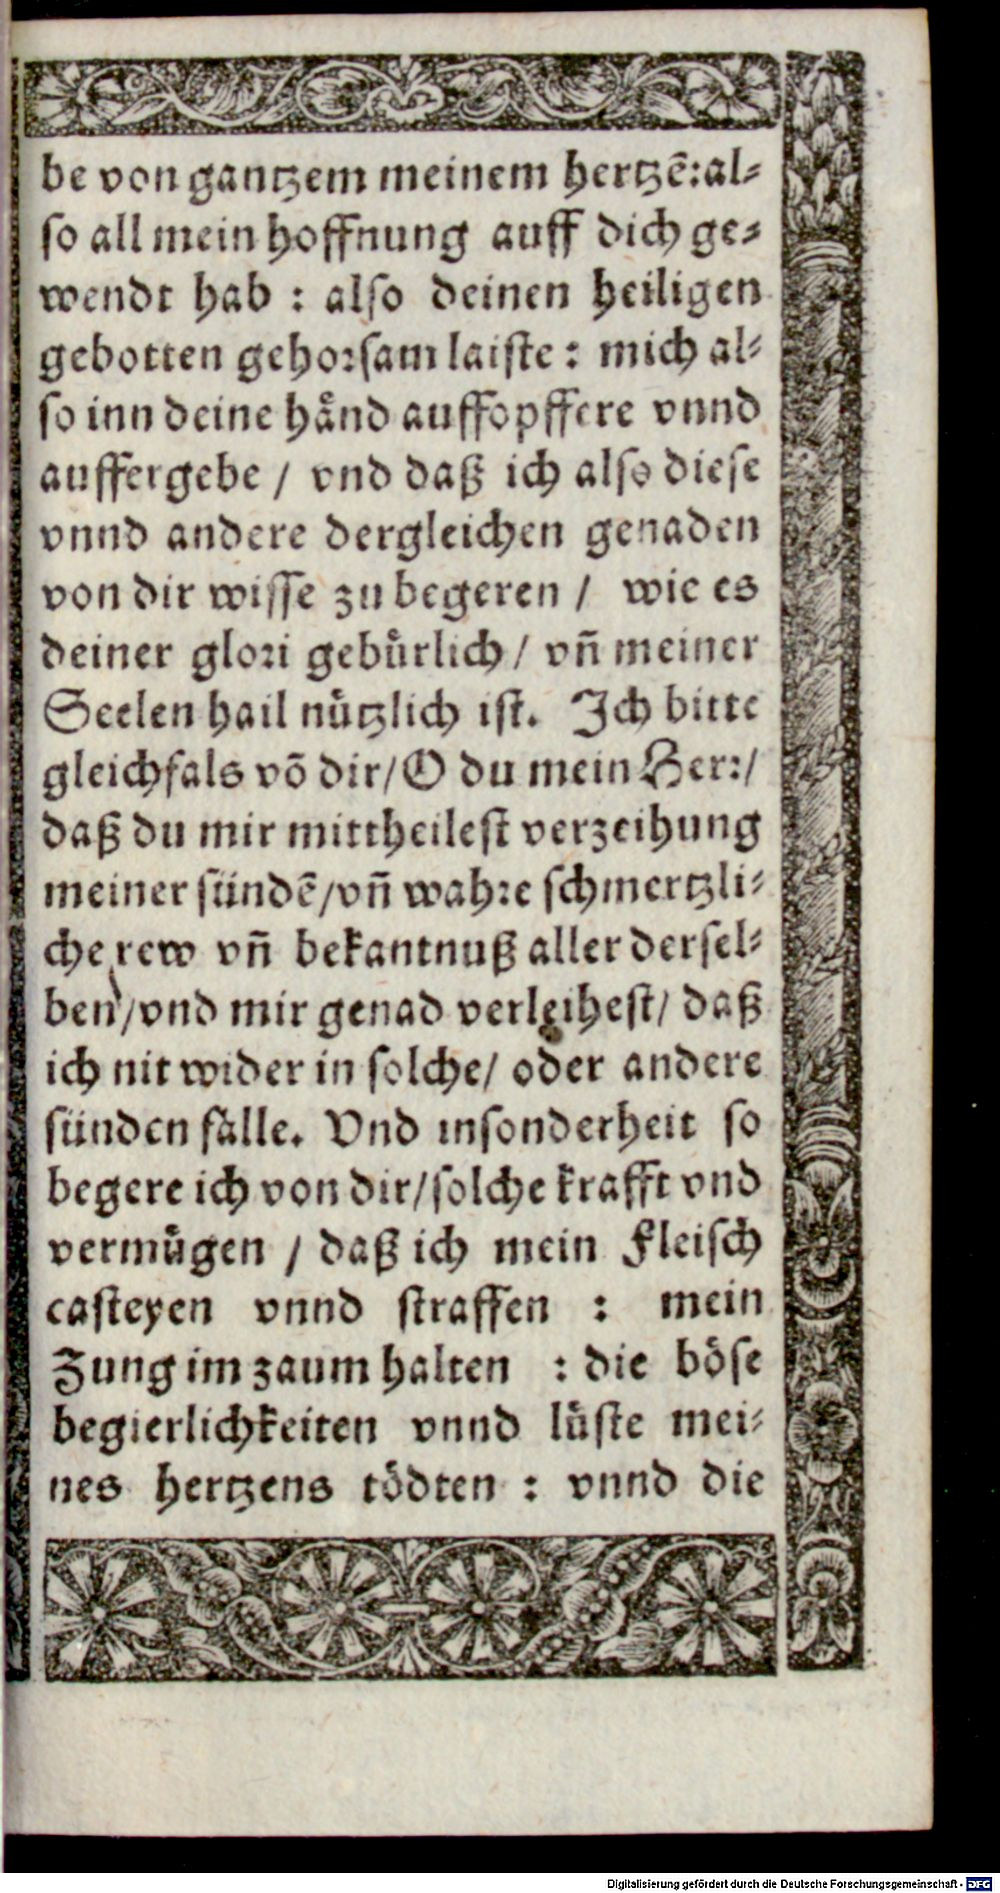 be von gantzem meinem hertzẽ: al⸗
so all mein hoffnung auff dich ge⸗
wendt hab : also deinen heiligen
gebotten gehorsam laiste : mich al⸗
so inn deine hånd auffopffere vnnd
auffergebe / vnd daß ich also diese
vnnd andere dergleichen genaden
von dir wisse zu begeren / wie es
deiner glori gebůrlich / vñ meiner
Seelen hail nůtzlich ist. Ich bitte
gleichfals võ dir / O du mein Herr /
daß du mir mittheilest verzeihung
meiner sündẽ / vñ wahre schmertzli⸗
che rew vñ bekantnuß aller dersel⸗
ben / vnd mir genad verleihest / daß
ich nit wider in solche / oder andere
sünden fålle. Vnd insonderheit so
begere ich von dir / solche krafft vnd
vermůgen / daß ich mein Fleisch
casteyen vnnd straffen : mein
Zung im zaum halten : die böse
begierlichkeiten vnnd lůste mei⸗
nes hertzens tödten : vnnd die
Digitalisierung gefördert durch die Deutsche Forschungsgemeinschaft - DFG